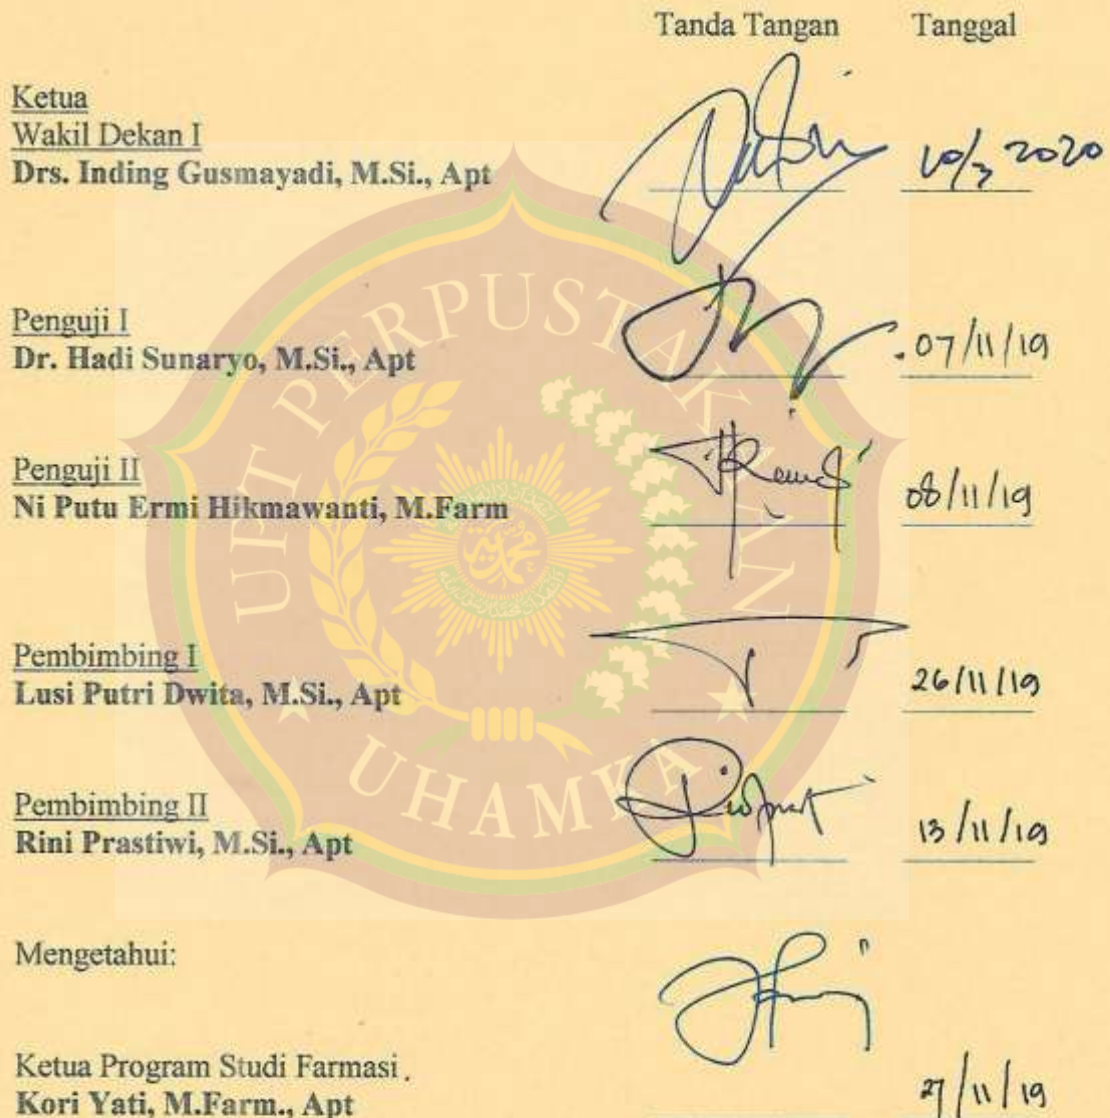 Tanda Tangan Tanggal
Ketua
Wakil Dekan I
Drs. Inding Gusmayadi, M.Si., Apt 10/3 2020
Penguji I
Dr. Hadi Sunaryo, M.Si., Apt 07/11/19
Penguji II
Ni Putu Ermi Hikmawanti, M.Farm 08/11/19
Pembimbing I
Lusi Putri Dwita, M.Si., Apt 26/11/19
Pembimbing II
Rini Prastiwi, M.Si., Apt 13/11/19
Mengetahui:
Ketua Program Studi Farmasi
Kori Yati, M.Farm., Apt 27/11/19
UPT PERPUSTAKAAN
UHAMKA